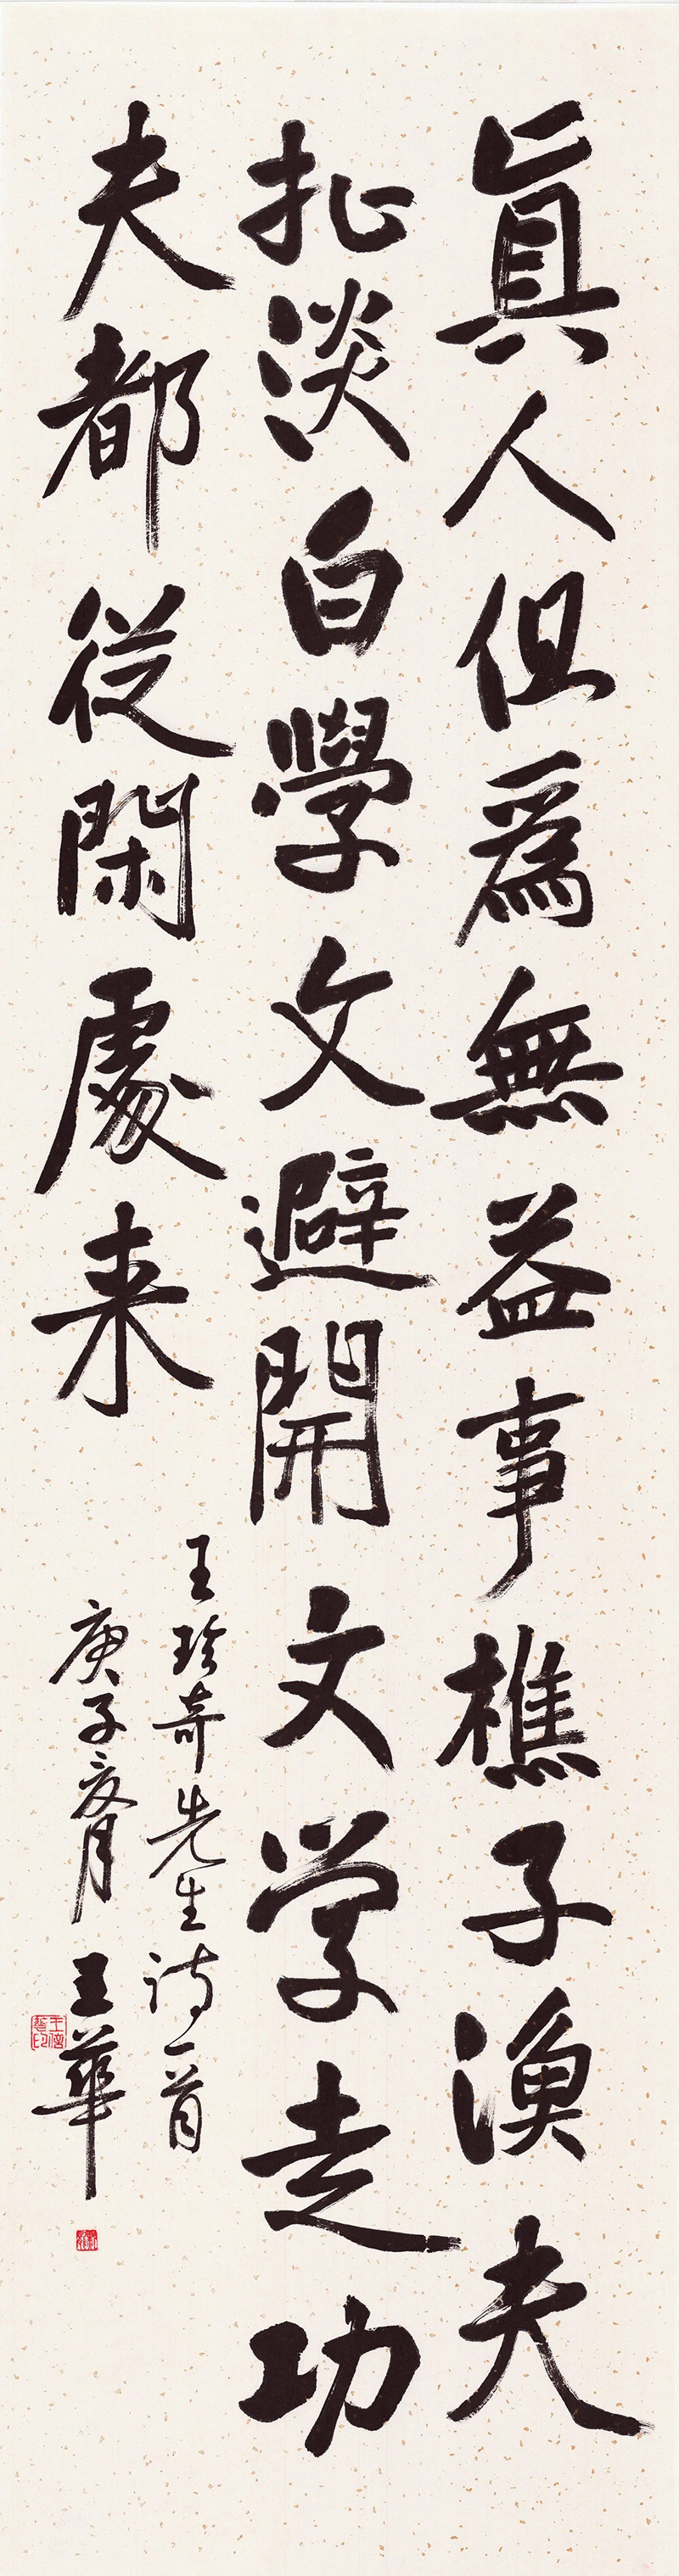 真人但為無益事樵子漁夫
扯淡白學文避開文学走功
夫都從閑處来
王珍奇先生诗一首
庚子夏月 王華